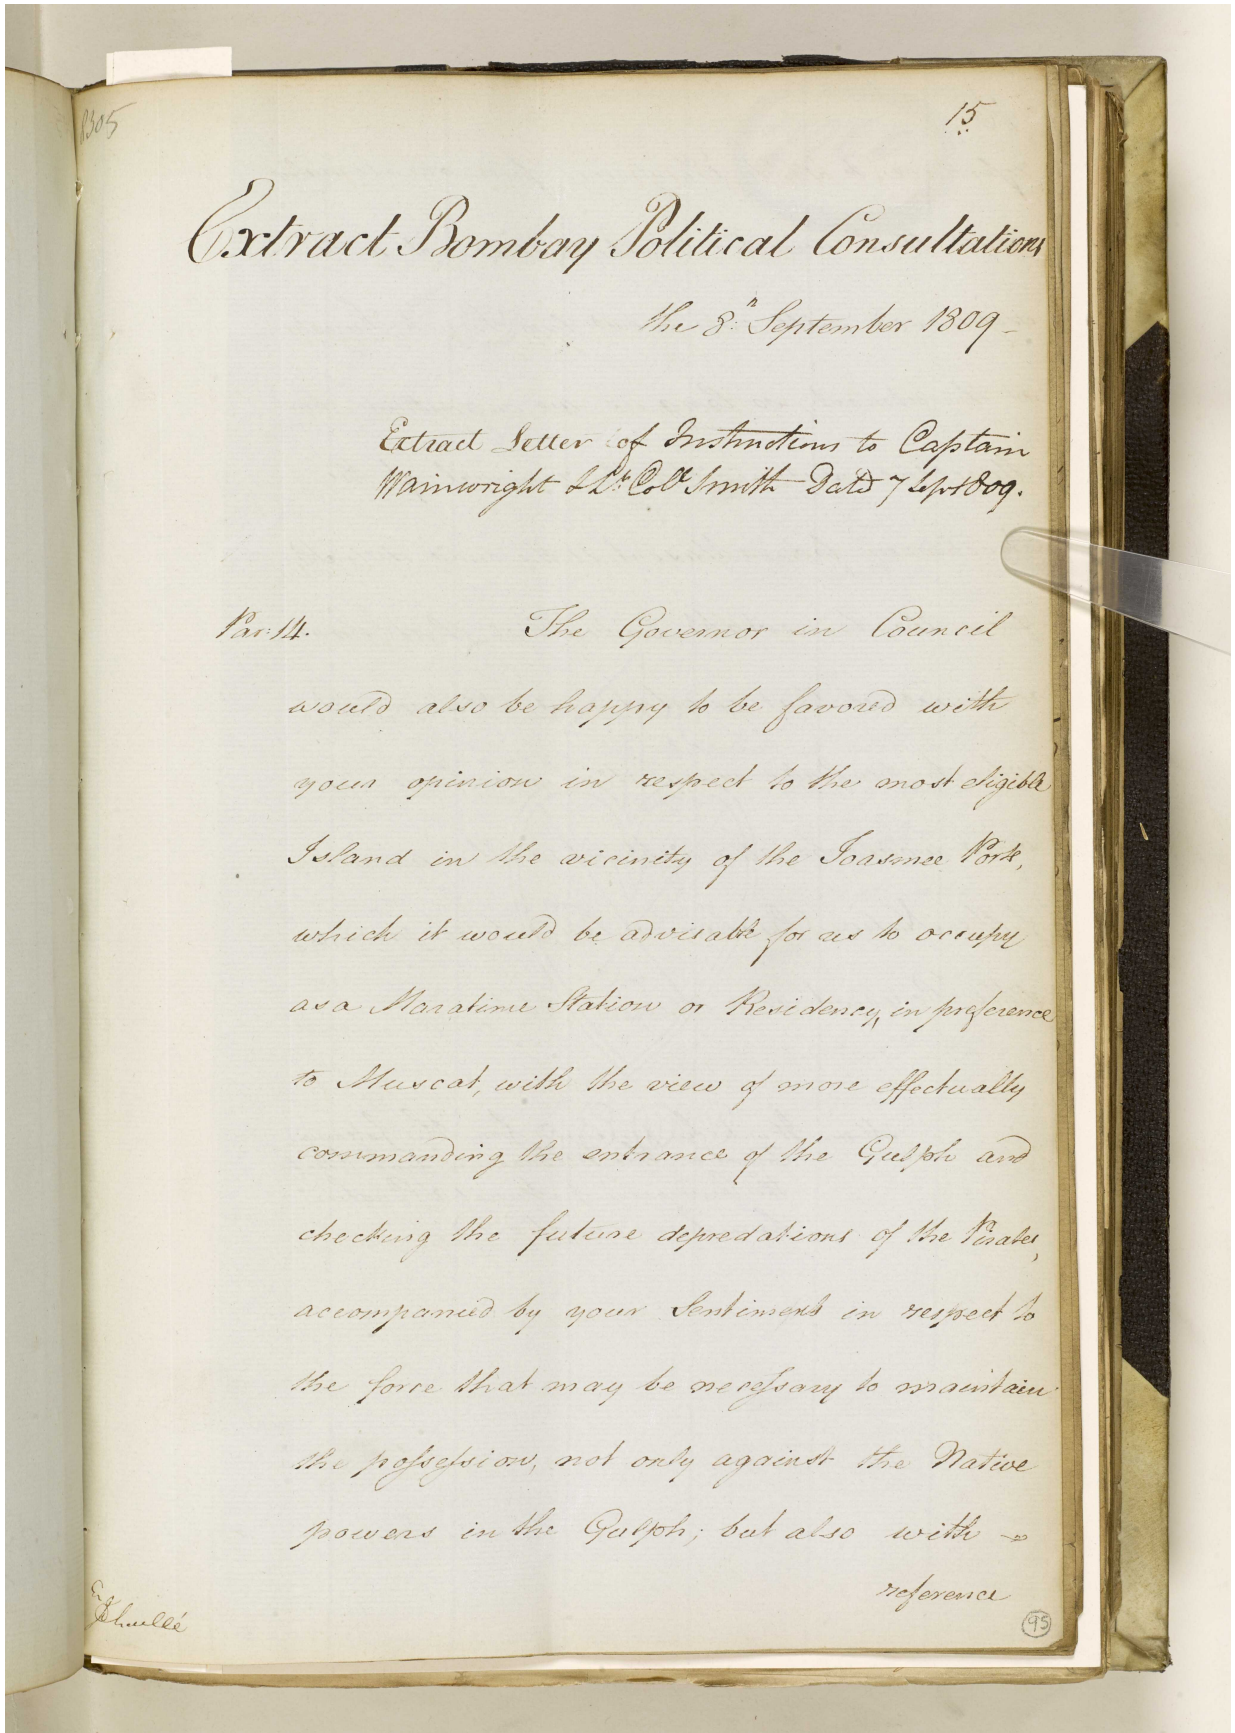 8305
15
Extract Bombay Political Consultations
the 8th September 1809
Extract Letter of Instructions to Captain
Wainwright & Lt. Coll Smith Dated 7 Sep 1809.
Par: 14. The Governor in Council
would also be happy to be favored with
your opinion in respect to the most eligible
Island in the vicinity of the Joasmee Ports,
which it would be advisable for us to occupy
as a Maratime Station or Residency, in preference
to Muscat, with the view of more effectually
commanding the entrance of the Gulph and
checking the future depredations of the Pirates,
accompanied by your Sentiments in respect to
the force that may be necessary to maintain
the possession, not only against the Native
powers in the Gulph; but also with
reference
95